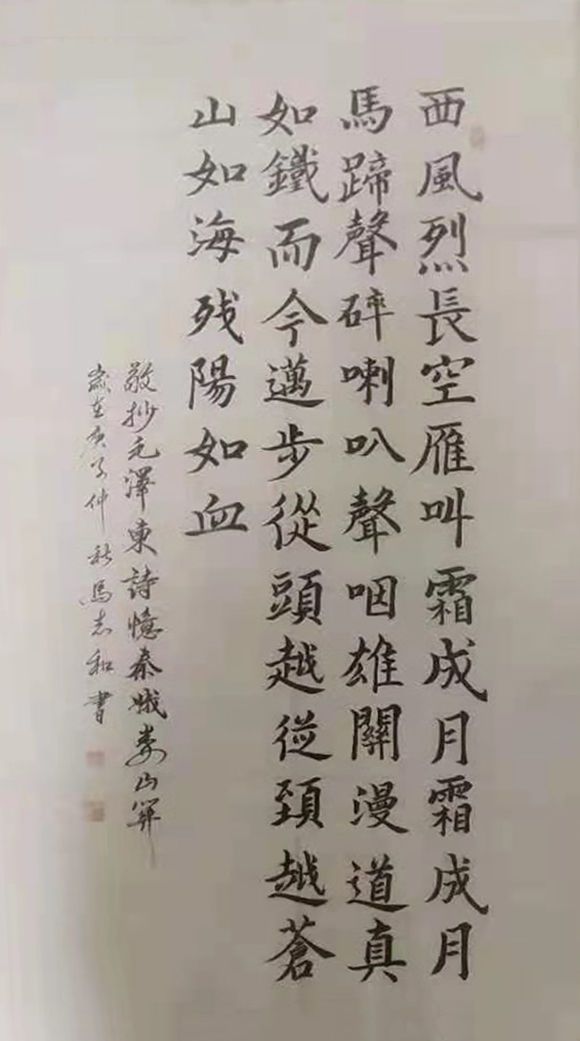 西風烈長空雁叫霜成月霜成月
馬蹄聲碎喇叭聲咽雄關漫道真
如鐵而今邁步從頭越從頭越蒼
山如海残陽如血
敬抄毛澤東詩憶秦娥婁山關
歲在庚子仲秋馬志和書